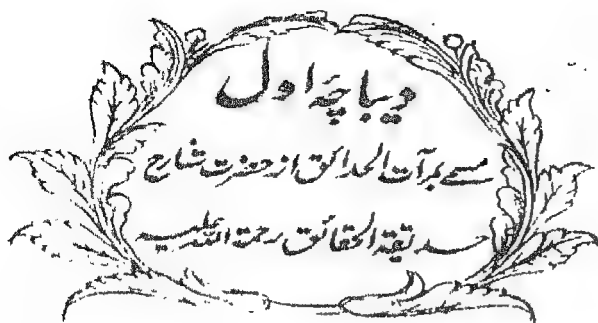 دیباچۂ اول
مسمے بمرآت الحدائق از حضرت شارح
حدیقة الحقائق رحمة الله علیه